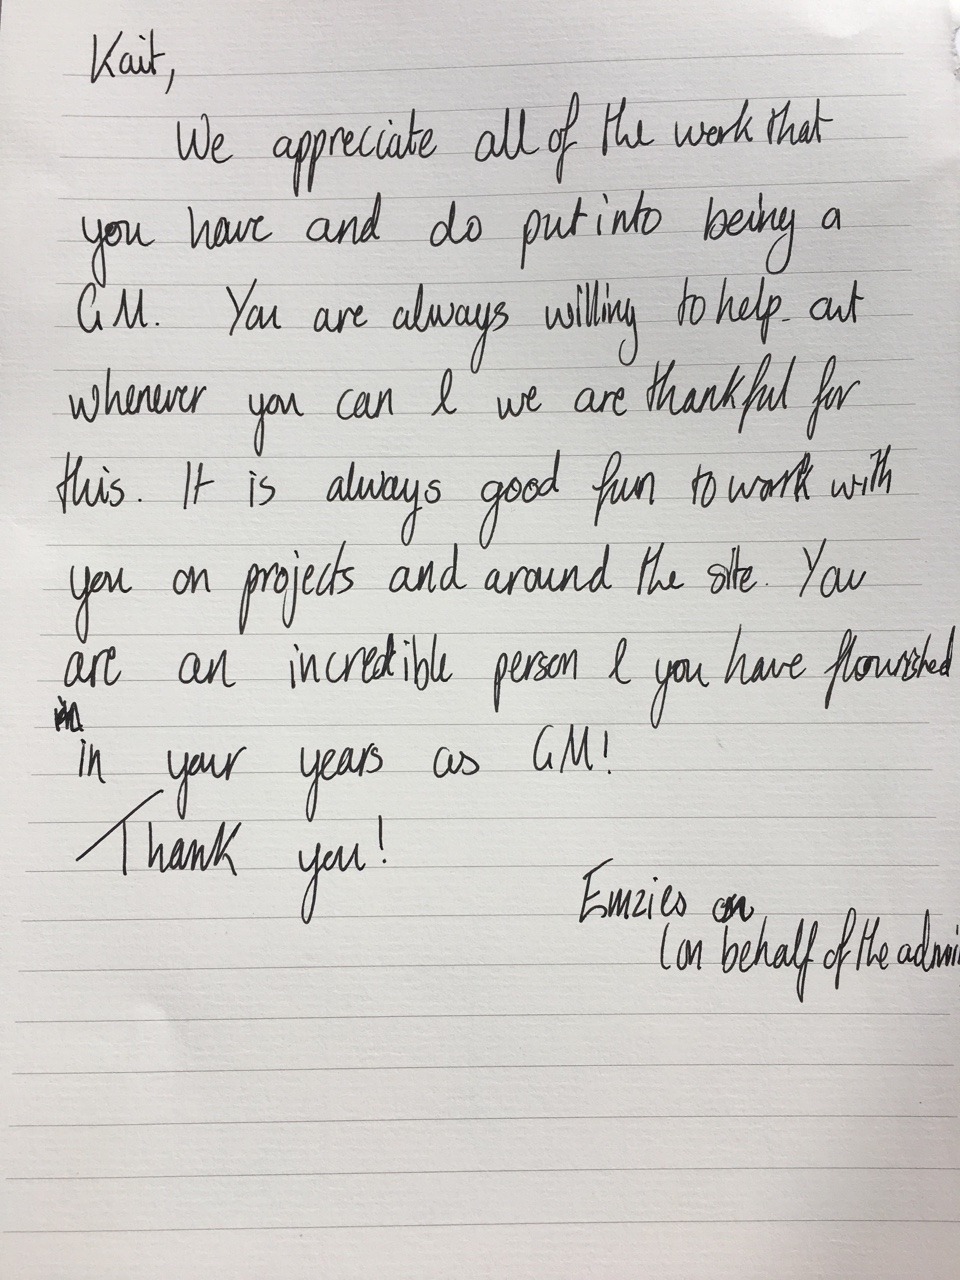 Kait,
We appreciate all of the work that
you have and do put into being a
GM. You are always willing to help out
whenever you can & we are thankful for
this. It is always good fun to work with
you on projects and around the site. You
are an incredible person & you have flourished
in your years as GM!
Thank you!
Emzies
(on behalf of the admi